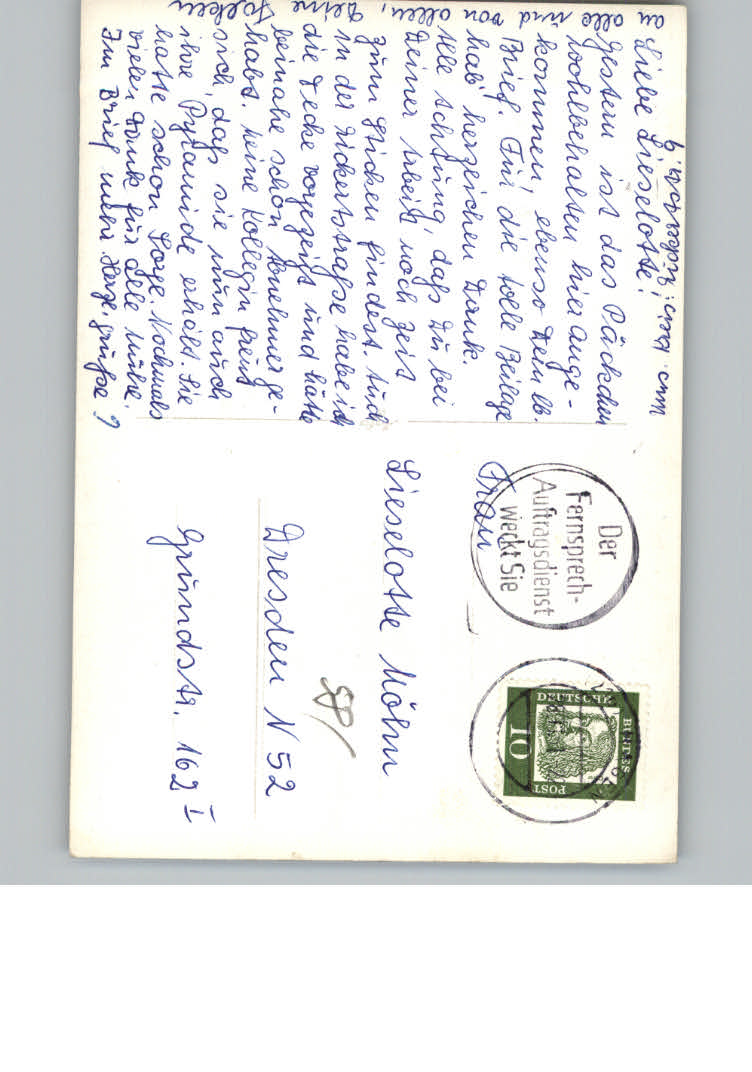 Liebe Lieselotte!
Gestern ist das Päckchen
wohlbehalten hier ange-
kommen, ebenso Dein lb.
Brief. Für die tolle Beilage
hab' herzlichen Dank.
Alle Achtung, daß Du bei
Deiner Arbeit noch Zeit
zum Sticken findest. Auch
in der Eickertstraße habe ich
die Decke vorgezeigt und hätte
beinahe schon Abnehmer ge-
habt. Meine Kollegin freut
sich, daß sie nun auch
ihre Pyramide erhält. Sie
hatte schon Sorge. Nochmals
vielen Dank für alle Mühe.
Im Brief mehr. Herzl. Grüße
an alle und von allen, Deine
Frau
Lieselotte Möhn
Dresden N 52
Grundstr. 162 I
Der
Fernsprech-
Auftragsdienst
weckt Sie
DEUTSCHE
BUNDES
POST
10